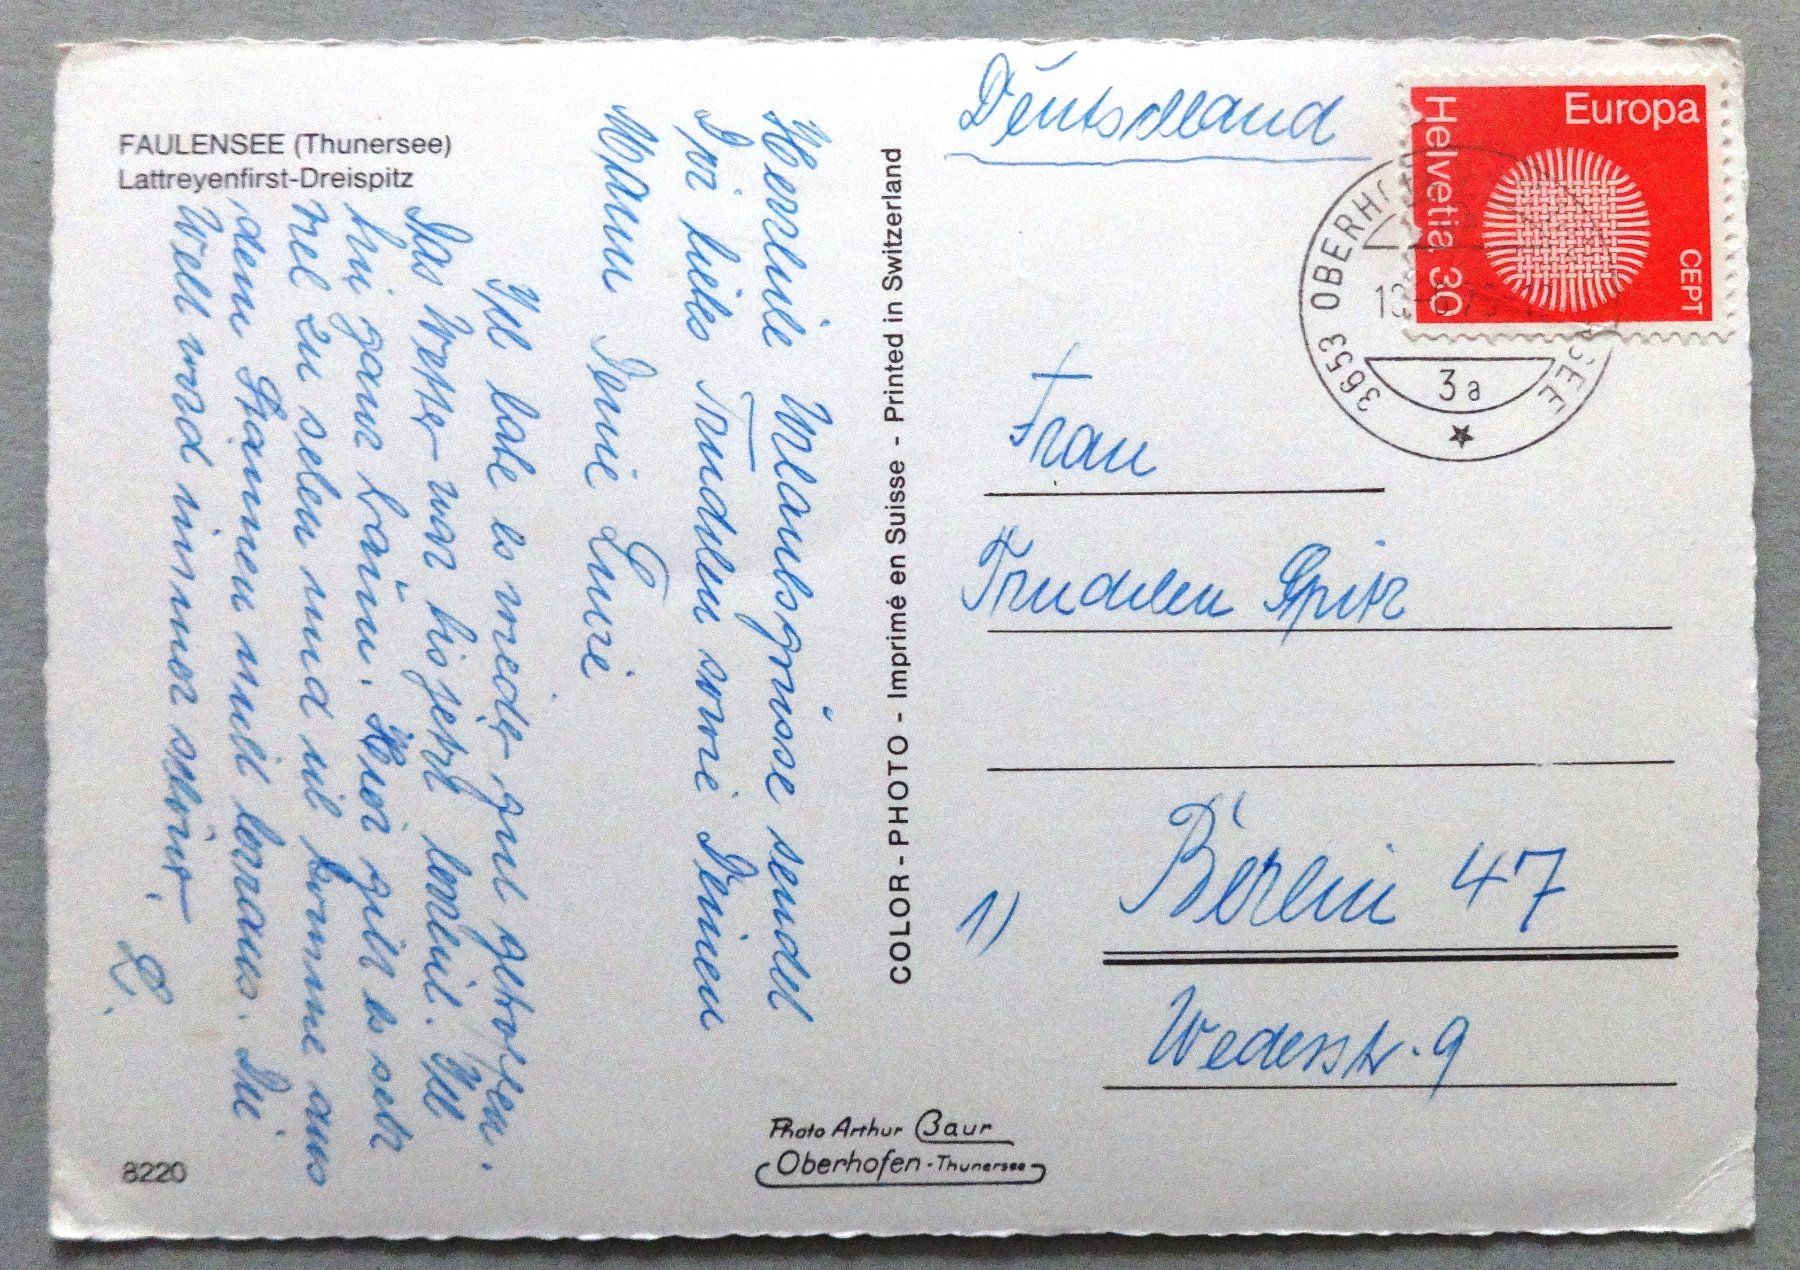 FAULENSEE (Thunersee)
Lattreyenfirst-Dreispitz
Herzliche Urlaubsgrüsse sendet
Dir liebes Trudchen sowie Deinen
Mann Deine Luzie
Ich habe es wieder gut getroffen.
Das Wetter war bis jetzt herrlich. Ich
bin ganz braun. Hier gibt es sehr
viel zu sehen und ich komme aus
dem Staunen nicht heraus. Die
Welt wird immer schöner.
L.
8220
COLOR-PHOTO - Imprimé en Suisse - Printed in Switzerland
Photo Arthur Baur
Oberhofen-Thunersee
Deutschland
Europa
Helvetia 30
CEPT
3653 OBERHO SEE
3a
Frau
Trudchen Spitz
1) Berlin 47
Wederstr. 9